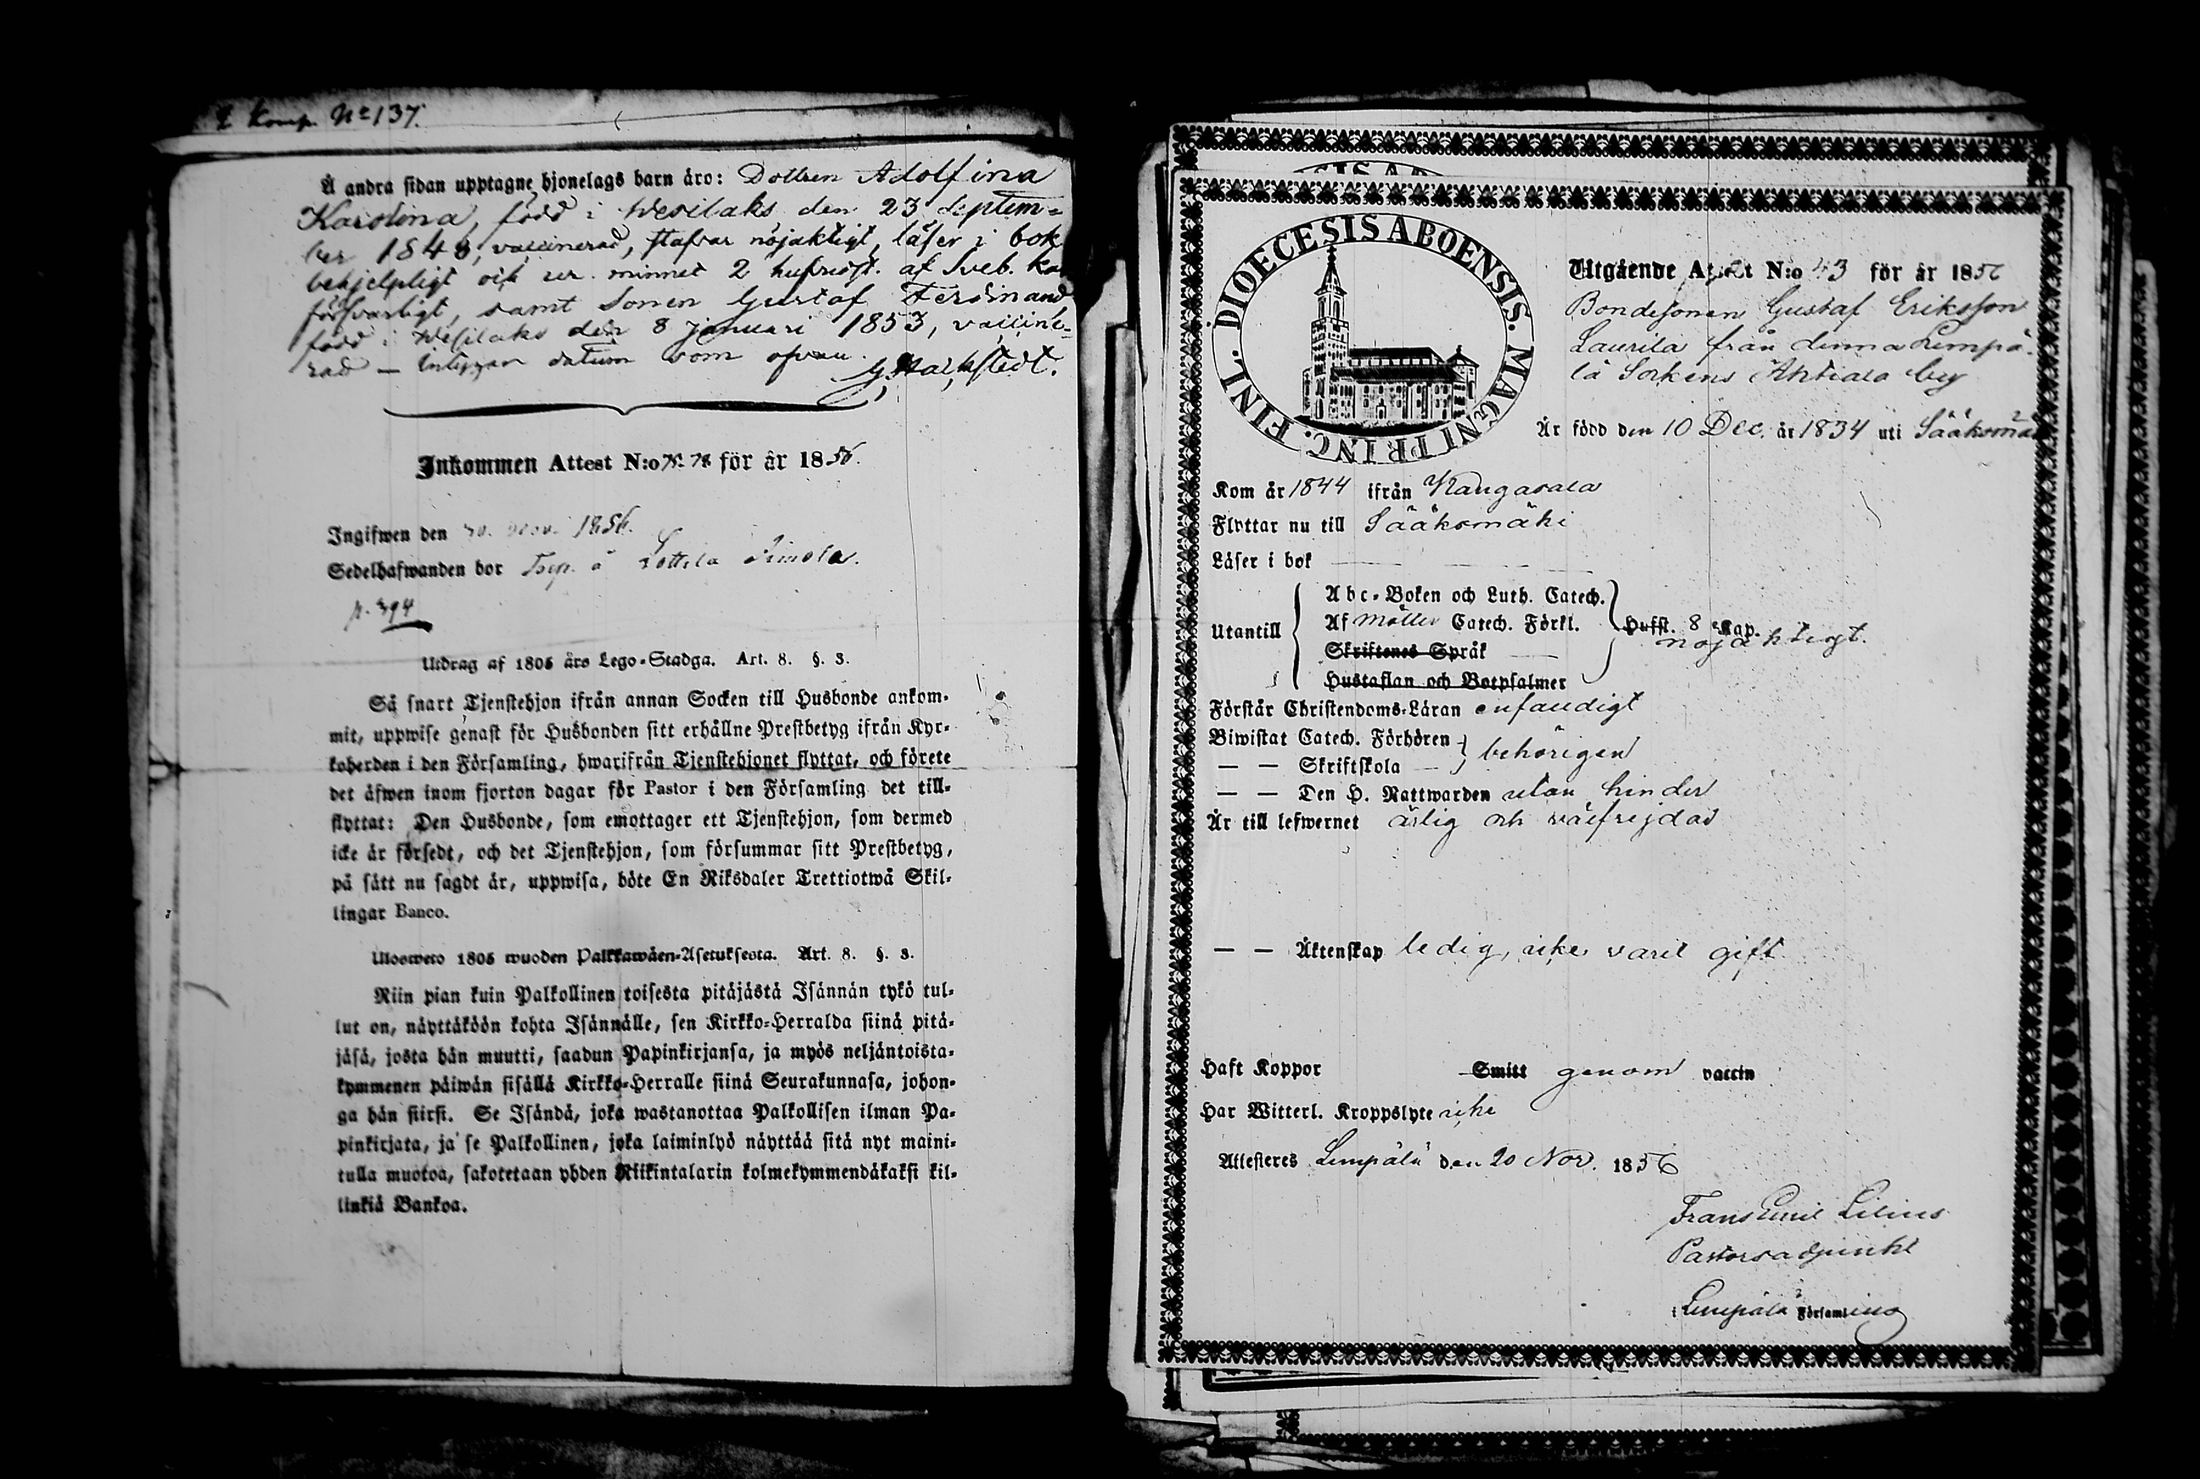 Komp. No 137.
Å andra sidan upptagne hjonelags barn äro: Dottren Adolfina
Karolina, född i Wesilaks den 23 Septem-
ber 1848, vaccinerad, stafvar nöjaktigt, läser i bok
behjelpligt och ur minnet 2 hufvudst. af Sveb. Kat
försvarligt, samt Sonen Gustaf Ferdinand
född i Wesilaks den 8 januari 1853, vaccine-
rad — Intygar datum som ofvan.
Inkommen Attest N:o 78 för år 1856.
Ingifwen den 30. 1856.
Sedelhafwanden bor å Lottila Simola.
p. 394
Utdrag af 1805 års Lego-Stadga. Art. 8. §. 3.
Så snart Tjenstehjon ifrån annan Socken till Husbonde ankom-
mit, uppwise genast för Husbonden sitt erhållne Prestbetyg ifrån Kyr-
koherden i den Församling, hwarifrån Tjenstehjonet flyttat, och förete
det äfwen inom fjorton dagar för Pastor i den Församling det till-
flyttat: Den Husbonde, som emottager ett Tjenstehjon, som dermed
icke är försedt, och det Tjenstehjon, som försummar sitt Prestbetyg,
på sätt nu sagdt är, uppwisa, böte En Riksdaler Trettiotwå Skil-
lingar Banco.
Ulosweto 1805 wuoden Palkkawäen-Asetuksesta. Art. 8. §. 3.
Niin pian kuin Palkollinen toisesta pitäjästä Isännän tykö tul-
lut on, näyttäköön kohta Isännälle, sen Kirkko-Herralda siinä pitä-
jäsä, josta hän muutti, saadun Papinkirjansa, ja myös neljäntoista-
kymmenen päiwän sisällä Kirkko-Herralle siinä Seurakunnasa, johon-
ga hän siirsi. Se Isändä, joka wastanottaa Palkollisen ilman Pa-
pinkirjata, ja se Palkollinen, joka laiminlyö näyttää sitä nyt maini-
tulla muotoa, sakotetaan yhden Riikintalarin kolmekymmendäkaksi kil-
linkiä Bankoa.
DIOECESIS ABOENSIS. MAGNI PRINC. FINL.
Utgående Attest N:o 43 för år 1856
Bondesonen Gustaf Eriksson
Laurila från denna Lempä-
lä Sockens Ahtiala by
Är född den 10 Dec. år 1834 uti Sääksmäki
Kom år 1844 ifrån Kangasala
Flyttar nu till Sääksmäki
Läser i bok
Utantill
Abc-Boken och Luth. Catech.
Af Möllers Catech. Förkl.
Skriftenes Språk
Hustaflan och Botpsalmer
Hufst. 8 Kap.
nöjaktigt.
Förstår Christendoms-Läran enfaldigt
Biwistat Catech. Förhören
— — Skriftskola
behörigen
— — Den H. Nattwarden utan hinder
Är till lefwernet ärlig och välfrejdad
— — Äktenskap ledig, icke varit gift
Haft Koppor Smitt genom vaccin
Har Witterl. Kroppslyte icke
Attesteres Lempälä den 20 Nov. 1856
Frans Emil Lilius
Pastorsadjunkt
i Lempälä Församling